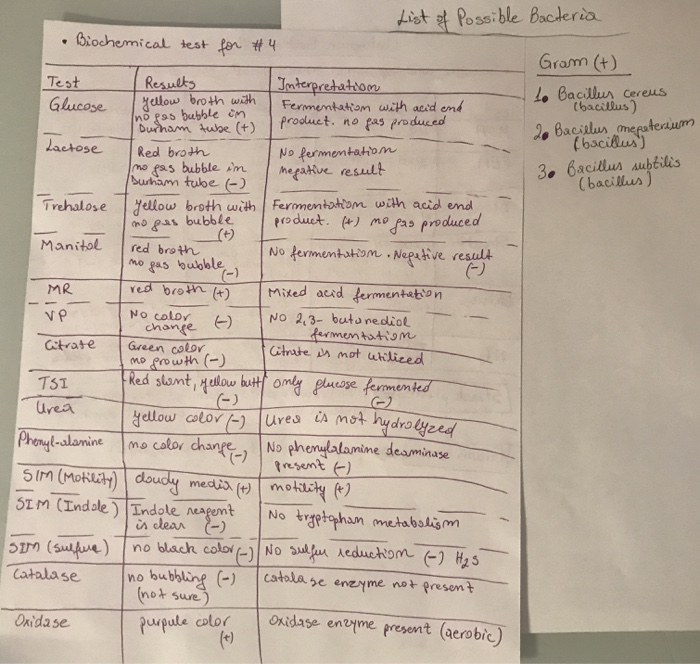 List of Possible Bacteria
• Biochemical test for #4
Test Results Interpretation
Glucose Yellow broth with Fermentation with acid end
no gas bubble in product. no gas produced
Durham tube (+)
Lactose Red broth No fermentation
no gas bubble in negative result
Durham tube (-)
Trehalose Yellow broth with Fermentation with acid end
no gas bubble product. (+) no gas produced
(+)
Manitol red broth No fermentation. Negative result
no gas bubble (-) (-)
MR red broth (+) Mixed acid fermentation
VP No color NO 2,3- butanediol
change (-) fermentation
Citrate Green color Citrate is not utilized
no growth (-)
TSI Red slant, yellow butt only glucose fermented
(-) (-)
Urea Yellow color (-) Urea is not hydrolyzed
Phenyl-alanine no color change No phenylalanine deaminase
(-) present (-)
SIM (Motility) cloudy media (+) motility (+)
SIM (Indole) Indole reagent No tryptophan metabolism
is clear (-)
SIM (sulfur) no black color (-) No sulfur reduction (-) H2S
Catalase no bubbling (-) catalase enzyme not present
(not sure)
Oxidase purpule color Oxidase enzyme present (aerobic)
(+)
Gram (+)
1. Bacillus cereus
(bacillus)
2. Bacillus megaterium
(bacillus)
3. Bacillus subtilis
(bacillus)